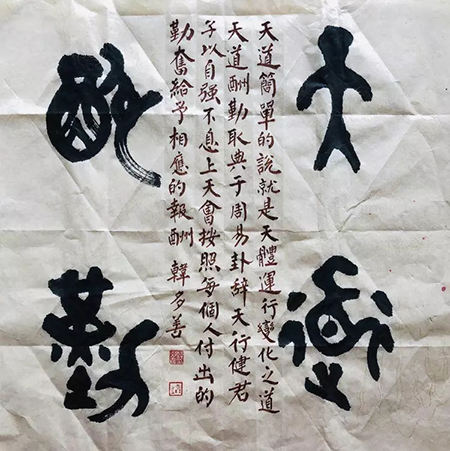 天道
天道簡單的說就是天體運行變化之道
天道酬勤取典于周易卦辭天行健君
子以自强不息上天會按照每個人付出的
勤奮給予相應的報酬 韓多善
酬勤